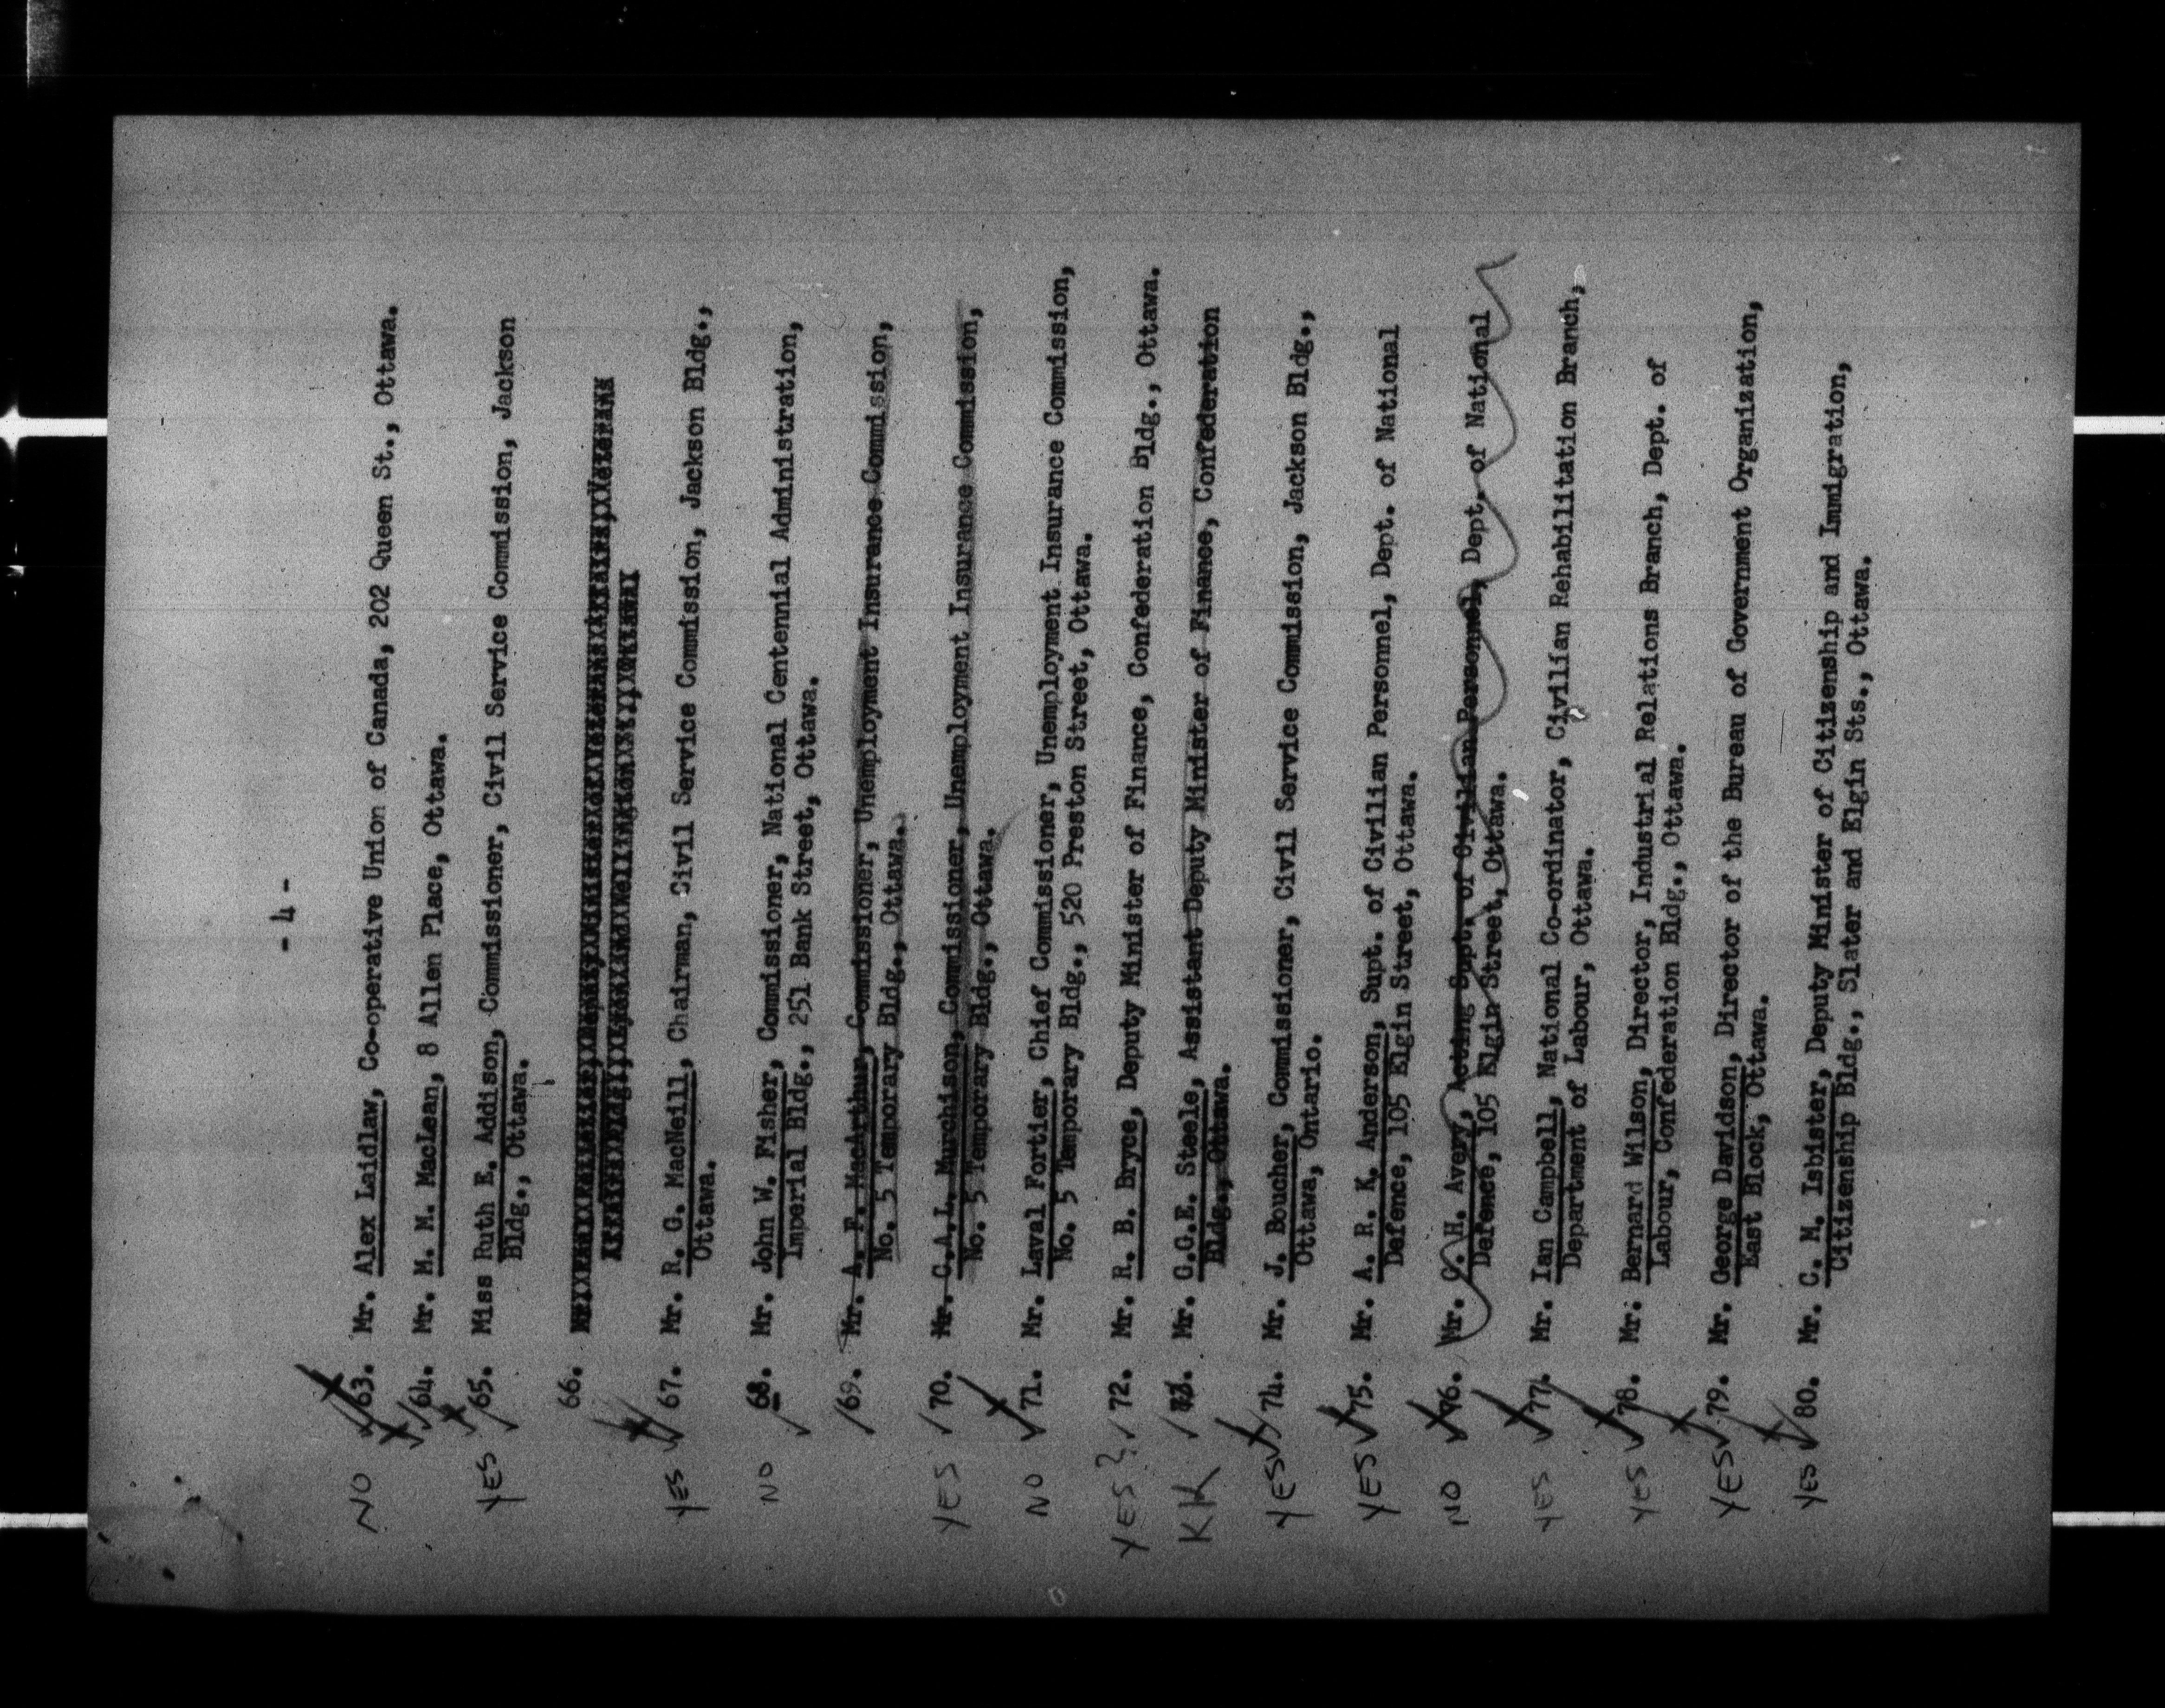 - 4 -
NO 63. Mr. Alex Laidlaw, Co-operative Union of Canada, 202 Queen St., Ottawa.
64. Mr. M. M. MacLean, 8 Allen Place, Ottawa.
YES 65. Miss Ruth E. Addison, Commissioner, Civil Service Commission, Jackson
Bldg., Ottawa.
66.
YES 67. Mr. R. G. MacNeill, Chairman, Civil Service Commission, Jackson Bldg.,
Ottawa.
NO 68. Mr. John W. Fisher, Commissioner, National Centennial Administration,
Imperial Bldg., 251 Bank Street, Ottawa.
69. Mr. A. F. MacArthur, Commissioner, Unemployment Insurance Commission,
No. 5 Temporary Bldg., Ottawa.
YES 70. Mr. C.A.L. Murchison, Commissioner, Unemployment Insurance Commission,
No. 5 Temporary Bldg., Ottawa.
NO 71. Mr. Laval Fortier, Chief Commissioner, Unemployment Insurance Commission,
No. 5 Temporary Bldg., 520 Preston Street, Ottawa.
YES? 72. Mr. R. B. Bryce, Deputy Minister of Finance, Confederation Bldg., Ottawa.
KK 73. Mr. G.G.E. Steele, Assistant Deputy Minister of Finance, Confederation
Bldg., Ottawa.
YES 74. Mr. J. Boucher, Commissioner, Civil Service Commission, Jackson Bldg.,
Ottawa, Ontario.
YES 75. Mr. A. R. K. Anderson, Supt. of Civilian Personnel, Dept. of National
Defence, 105 Elgin Street, Ottawa.
NO 76. Mr. C. H. Avery, Acting Supt. of Civilian Personnel, Dept. of National
Defence, 105 Elgin Street, Ottawa.
YES 77. Mr. Ian Campbell, National Co-ordinator, Civilian Rehabilitation Branch,
Department of Labour, Ottawa.
YES 78. Mr. Bernard Wilson, Director, Industrial Relations Branch, Dept. of
Labour, Confederation Bldg., Ottawa.
YES 79. Mr. George Davidson, Director of the Bureau of Government Organization,
East Block, Ottawa.
YES 80. Mr. C. M. Isbister, Deputy Minister of Citizenship and Immigration,
Citizenship Bldg., Slater and Elgin Sts., Ottawa.